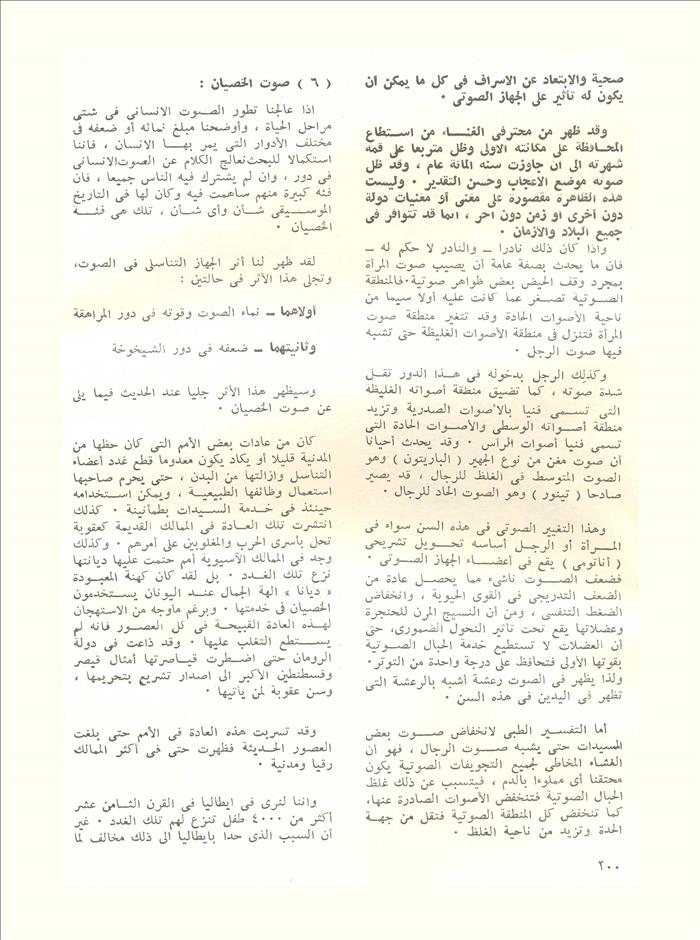 صحية والابتعاد عن الاسراف فى كل ما يمكن أن
يكون له تأثير على الجهاز الصوتى ٠
وقد ظهر من محترفى الغناء من استطاع
المحافظة على مكانته الاولى وظل متربعا على قمة
شهرته الى أن جاوزت سنه المائة عام ، وقد ظل
صوته موضع الاعجاب وحسن التقدير ٠ وليست
هذه الظاهرة مقصورة على مغنى أو مغنيات دولة
دون أخرى أو زمن دون آخر ، انما قد تتوافر فى
جميع البلاد والأزمان ٠
واذا كان ذلك نادرا ــ والنادر لا حكم له ــ
فان ما يحدث بصفة عامة أن يصيب صوت المرأة
بمجرد وقف الحيض بعض ظواهر صوتية ٠ فالمنطقة
الصوتية تصغر عما كانت عليه أولا سيما من
ناحية الأصوات الحادة وقد تتغير منطقة صوت
المرأة فتنزل فى منطقة الأصوات الغليظة حتى تشبه
فيها صوت الرجل ٠
وكذلك الرجل بدخوله فى هذا الدور تقل
شدة صوته ، كما تضيق منطقة أصواته الغليظة
التى تسمى فنيا بالأصوات الصدرية وتزيد
منطقة أصواته الوسطى والأصوات الحادة التى
تسمى فنيا أصوات الرأس ٠ وقد يحدث أحيانا
أن صوت مغن من نوع الجهير ( الباريتون ) وهو
الصوت المتوسط فى الغلظ للرجال ، قد يصير
صادحا ( تينور ) وهو الصوت الحاد للرجال ٠
وهذا التغيير الصوتى فى هذه السن سواء فى
المرأة أو الرجل أساسه تحويل تشريحى
( أناتومى ) يقع فى أعضاء الجهاز الصوتى ٠
فضعف الصوت ناشىء مما يحصل عادة من
الضعف التدريجى فى القوى الحيوية ، وانخفاض
الضغط التنفسى ، ومن أن النسيج المرن للحنجرة
وعضلاتها يقع تحت تأثير النحول الضمورى، حتى
أن العضلات لا تستطيع خدمة الحبال الصوتية
بقوتها الأولى فتحافظ على درجة واحدة من التوتر٠
ولذا يظهر فى الصوت رعشة أشبه بالرعشة التى
تظهر فى اليدين فى هذه السن ٠
أما التفسير الطبى لانخفاض صوت بعض
السيدات حتى يشبه صوت الرجال ، فهو أن
الغشاء المخاطى لجميع التجويفات الصوتية يكون
محتقنا أى مملوءا بالدم ، فيتسبب عن ذلك غلظ
الحبال الصوتية فتنخفض الأصوات الصادرة عنها،
كما تنخفض كل المنطقة الصوتية فتقل من جهة
الحدة وتزيد من ناحية الغلظ ٠
( ٦ ) صوت الخصيان :
اذا عالجنا تطور الصوت الانسانى فى شتى
مراحل الحياة ، وأوضحنا مبلغ نمائه أو ضعفه فى
مختلف الأدوار التى يمر بها الانسان ، فاننا
استكمالا للبحث نعالج الكلام عن الصوت الانسانى
فى دور ، وان لم يشترك فيه الناس جميعا ، فان
فئة كبيرة منهم ساهمت فيه وكان لها فى التاريخ
الموسيقى شأن وأى شأن ، تلك هى فئة
الخصيان ٠
لقد ظهر لنا أثر الجهاز التناسلى فى الصوت،
وتجلى هذا الأثر فى حالتين :
أولاهما ــ نماء الصوت وقوته فى دور المراهقة
وثانيتهما ــ ضعفه فى دور الشيخوخة
وسيظهر هذا الأثر جليا عند الحديث فيما يلى
عن صوت الخصيان ٠
كان من عادات بعض الأمم التى كان حظها من
المدنية قليلا أو يكاد يكون معدوما قطع غدد أعضاء
التناسل وازالتها من البدن ، حتى يحرم صاحبها
استعمال وظائفها الطبيعية ، ويمكن استخدامه
حينئذ فى خدمة السيدات بطمأنينة ٠ كذلك
انتشرت تلك العادة فى الممالك القديمة كعقوبة
تحل بأسرى الحرب والمغلوبين على أمرهم ٠ وكذلك
وجد فى الممالك الآسيوية أمم حتمت عليها ديانتها
نزع تلك الغدد ٠ بل لقد كان كهنة المعبودة
« ديانا » الهة الجمال عند اليونان يستخدمون
الخصيان فى خدمتها ٠ وبرغم ماوجه من الاستهجان
لهذه العادة القبيحة فى كل العصور فانه لم
يستطع التغلب عليها ٠ وقد ذاعت فى دولة
الرومان حتى اضطرت قياصرتها أمثال قيصر
وقسطنطين الأكبر الى اصدار تشريع بتحريمها ،
وسن عقوبة لمن يأتيها ٠
وقد تسربت هذه العادة فى الأمم حتى بلغت
العصور الحديثة فظهرت حتى فى أكثر الممالك
رقيا ومدنية ٠
واننا لنرى فى ايطاليا فى القرن الثامن عشر
أكثر من ٤٠٠٠ طفل تنزع لهم تلك الغدد ٠ غير
أن السبب الذى حدا بايطاليا الى ذلك مخالف لما
٢٠٠